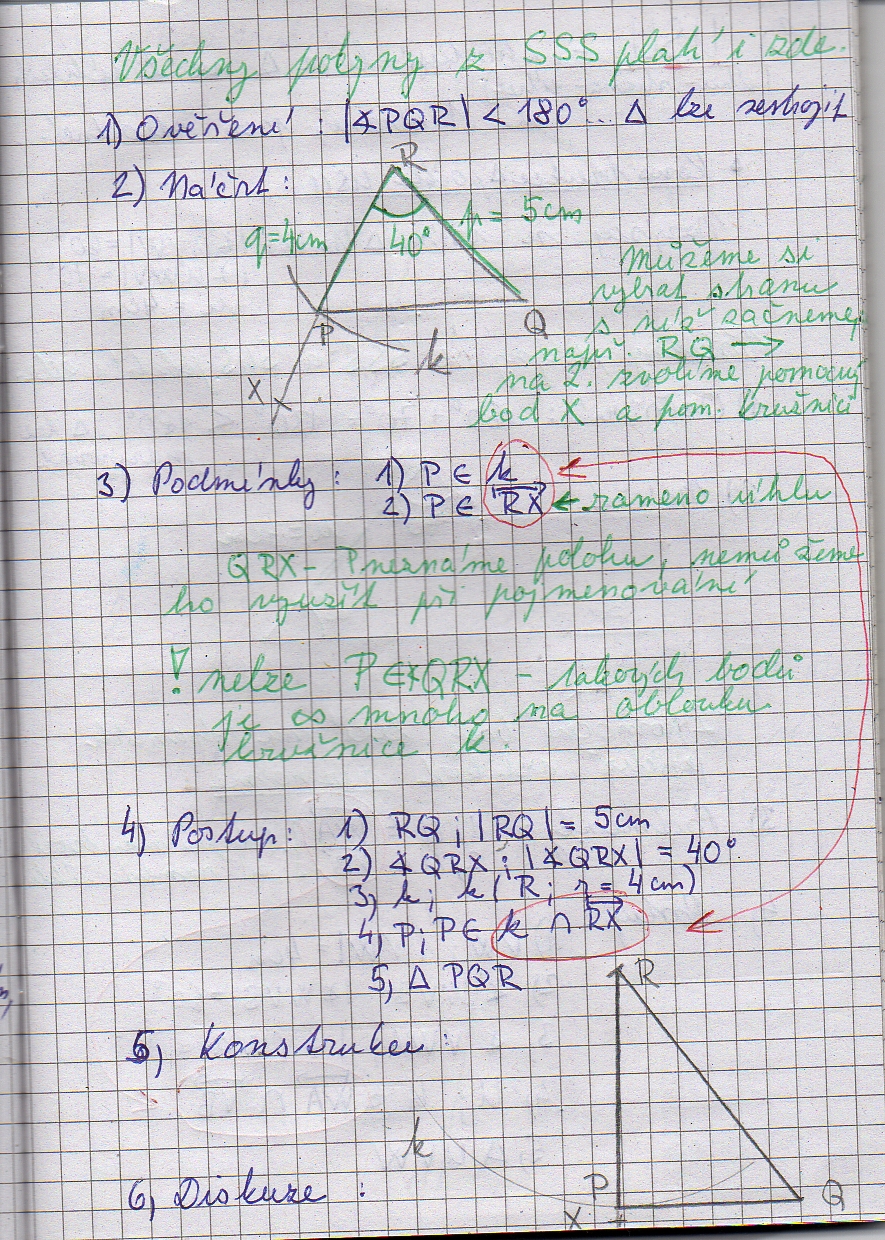 Všechny pokyny z SSS platí i zde.
1) Ověření : |∢PQR| < 180° .. Δ lze sestrojit
2) Náčrt :
R
q=4cm
40°
p = 5cm
P
Q
k
X
Můžeme si
vybrat stranu
s níž začneme,
např. RQ →
na 2. zvolíme pomocný
bod X a pom. kružnici
3) Podmínky : 1) P ∈ k
2) P ∈ RX ← rameno úhlu
QRX - P neznáme polohu, nemůžeme
ho využít při pojmenování
! nelze P∈∢QRX - takových bodů
je ∞ mnoho na oblouku
kružnice k.
4) Postup: 1) RQ ; |RQ| = 5cm
2) ∢QRX ; |∢QRX| = 40°
3) k; k( R; r = 4cm)
4, P; P∈ k ∩ RX
5, Δ PQR
5) Konstrukce :
R
k
P
X
Q
6, Diskuze :